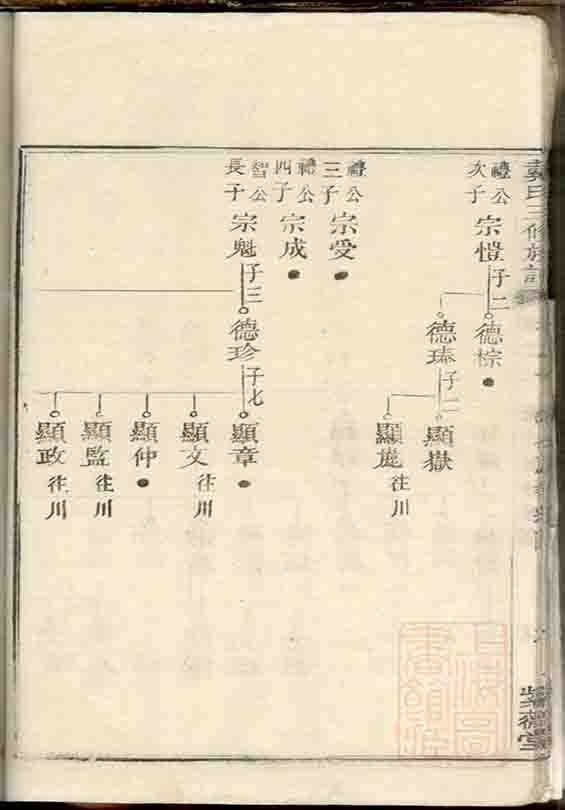 袁氏三修族譜
紫薇堂
禮公
次子
宗愷
子二
德棕
德㻎
子二
顯嶽
顯崑
往川
禮公
三子
宗受
禮公
四子
宗成
智公
長子
宗魁
子三
德珍
子七
顯章
顯文
往川
顯仲
顯監
往川
顯政
往川
上海圖
書館